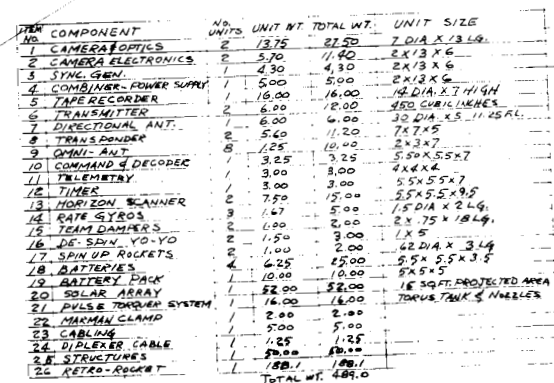 ITEM NO. COMPONENT NO. UNITS UNIT WT. TOTAL WT. UNIT SIZE
1 CAMERA & OPTICS 2 13.75 27.50 7 DIA. X 13 LG.
2 CAMERA ELECTRONICS 2 5.70 11.40 2 X 13 X 6
3 SYNC. GEN. 1 4.30 4.30 2 X 13 X 6
4 COMBINER - POWER SUPPLY 1 5.00 5.00 2 X 13 X 6
5 TAPE RECORDER 1 16.00 16.00 14 DIA. X 7 HIGH
6 TRANSMITTER 2 6.00 12.00 450 CUBIC INCHES
7 DIRECTIONAL ANT. 1 6.00 6.00 30 DIA. X 5 11.25 F.L.
8 TRANSPONDER 2 5.60 11.20 7 X 7 X 5
9 OMNI-ANT. 8 1.25 10.00 2 X 3 X 7
10 COMMAND & DECODER 1 3.25 3.25 5.50 X 5.5 X 7
11 TELEMETRY 1 3.00 3.00 4 X 4 X 4
12 TIMER 1 3.00 3.00 5.5 X 5.5 X 7
13 HORIZON SCANNER 2 7.50 15.00 5.5 X 5.5 X 9.5
14 RATE GYROS 3 1.67 5.00 1.5 DIA X 2 LG.
15 TEAM DAMPERS 2 1.00 2.00 2 X .75 X 18 LG.
16 DE-SPIN YO-YO 2 1.50 3.00 1 X 5
17 SPIN UP ROCKETS 2 1.00 2.00 .62 DIA. X 3 LG
18 BATTERIES 4 6.25 25.00 5.5 X 5.5 X 3.5
19 BATTERY PACK 1 10.00 10.00 5 X 5 X 5
20 SOLAR ARRAY 1 52.00 52.00 SQ FT. PROJECTED AREA
21 PULSE TORQUER SYSTEM 1 16.00 16.00 TORUS TANK & NOZZLES
22 MARMAN CLAMP 1 2.00 2.00
23 CABLING 1 5.00 5.00
24 DIPLEXER CABLE 1 1.25 1.25
25 STRUCTURES 1 50.00 50.00
26 RETRO-ROCKET 1 188.1 188.1
TOTAL WT. 489.0